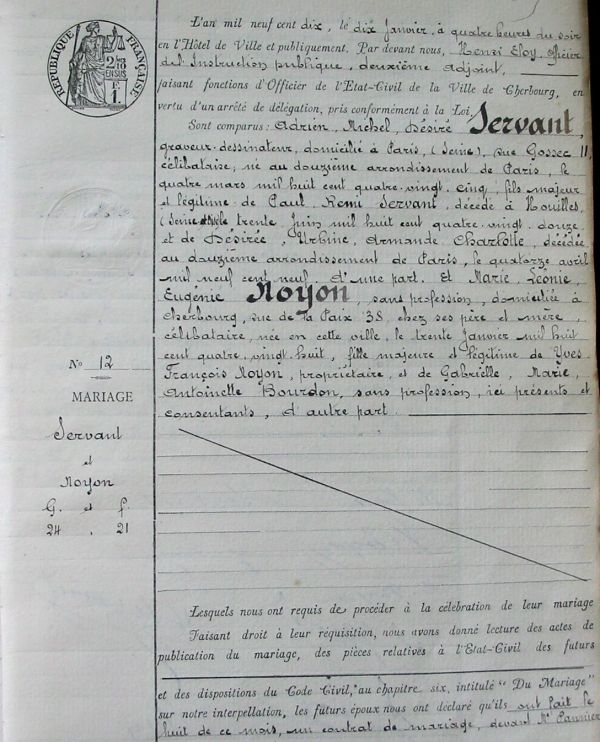 RÉPUBLIQUE FRANÇAISE
L'an mil neuf cent dix, le dix Janvier, à quatre heures du soir
en l'Hôtel de Ville et publiquement. Par devant nous, Henri Eloy, officier
de l'Instruction publique, deuxième adjoint,
faisant fonctions d'Officier de l'Etat-Civil de la Ville de Cherbourg, en
vertu d'un arrêté de délégation, pris conformément à la Loi,
Sont comparus : Adrien, Michel, Désiré Servant,
graveur-dessinateur, domicilié à Paris, (Seine), rue Gossec 11,
célibataire, né au douzième arrondissement de Paris, le
quatre mars mil huit cent quatre-vingt-cinq ; fils majeur
et légitime de Paul Remi Servant, décédé à Houilles
(Seine et Oise) le trente Juin mil huit cent quatre-vingt-douze
et de Désirée, Urbine, Armande Charlotte, décédée
au douzième arrondissement de Paris, le quatorze avril
mil neuf cent neuf, d'une part. Et Marie, Léonie,
Eugénie Noyon, sans profession, domiciliée à
Cherbourg, rue de la Paix 38, chez ses père et mère,
célibataire, née en cette ville, le trente Janvier mil huit
cent quatre-vingt-huit, fille majeure et légitime de Yves
François Noyon, propriétaire, et de Gabrielle, Marie,
Antoinette Bourdon, sans profession, ici présents et
consentants, d'autre part.
No 12
MARIAGE
Servant
et
Noyon
G. et f.
24 . 21
Lesquels nous ont requis de procéder à la célébration de leur mariage
Faisant droit à leur réquisition, nous avons donné lecture des actes de
publication du mariage, des pièces relatives à l'Etat-Civil des futurs
et des dispositions du Code Civil, au chapitre six, intitulé " Du Mariage "
sur notre interpellation, les futurs époux nous ont déclaré qu'ils ont fait le
huit de ce mois, un contrat de mariage, devant Me